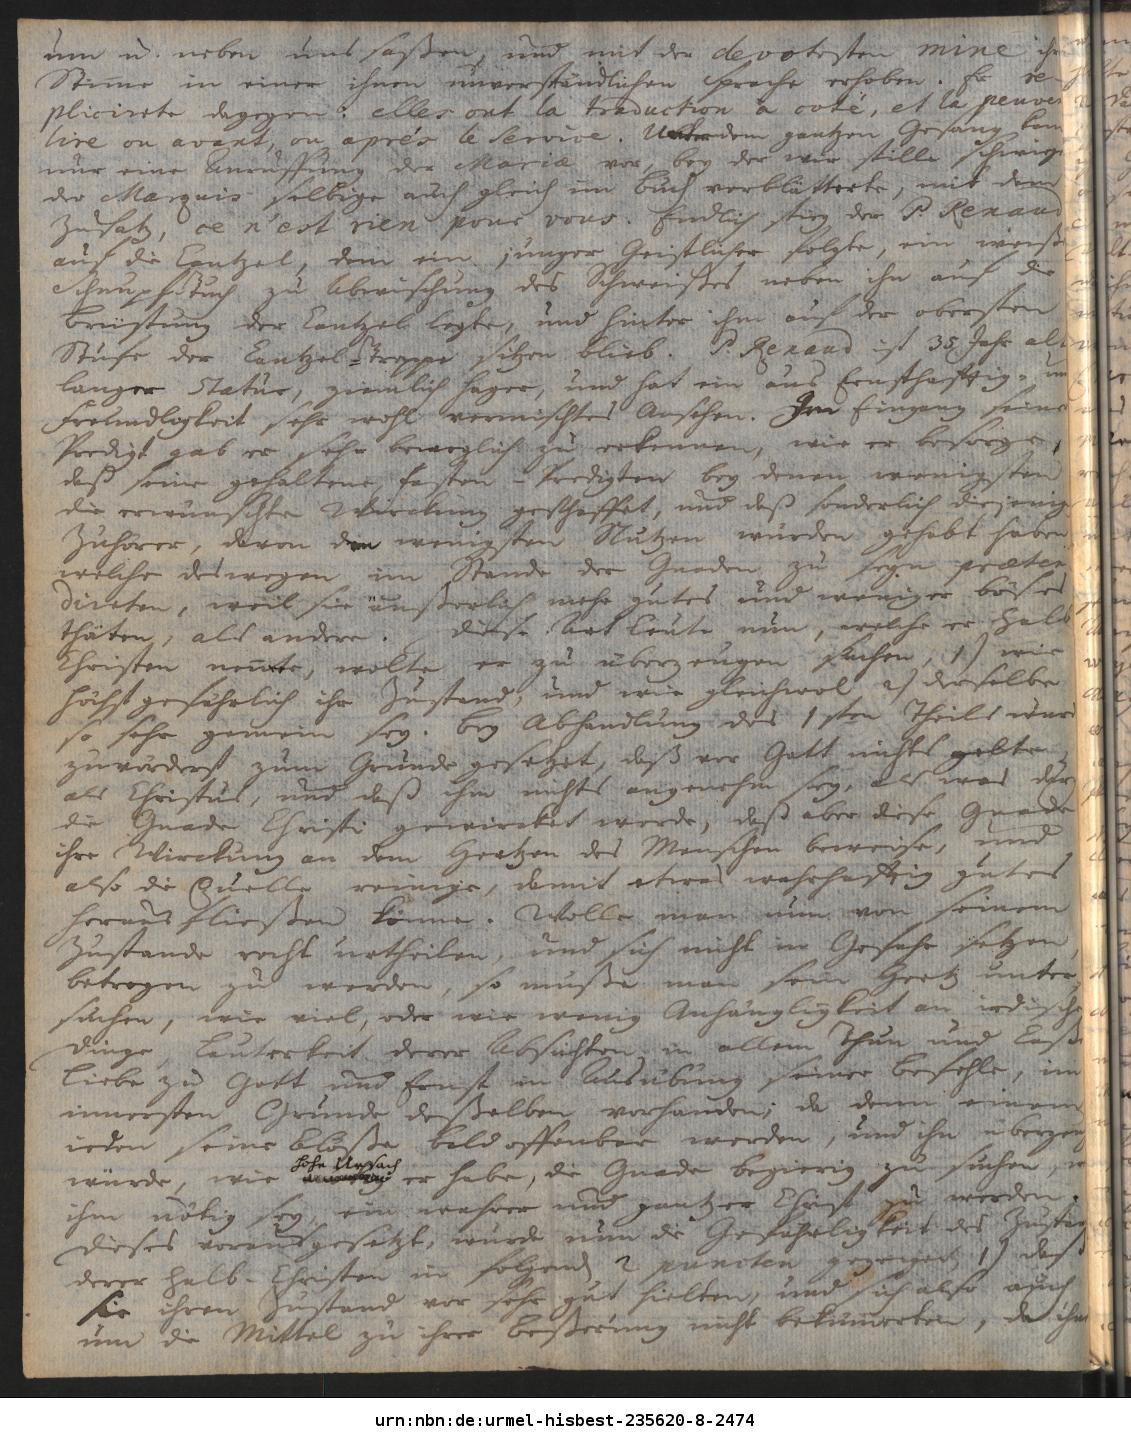 um u. neben uns saßen, und mit der devotesten mine ihre
Stimme in einer ihnen unverständlichen Sprache erhoben. Er re-
plicirte dagegen: elles ont la traduction a coté, et la peuvent
lire ou avant, ou aprés le Service. Unter dem gantzen Gesang kam
nur eine Anruffung der Mariæ vor, bey der wir stille schwiegen
der Marquis selbige auch gleich im Buch verblätterte, mit dem
Zusatz, ce n'est rien pour vous. Endlich stieg der P. Renaud
auf die Cantzel, dem ein junger Geistlicher folgte, ein weiß
Schnupftuch zu Abwischung des Schweißes neben ihn auf die
Brüstung der Cantzel legte, und hinter ihm auf der obersten
Stufe der Cantzel-Treppe sitzen blieb. P. Renaud ist 35 Jahr alt
langer Statur, ziemlich hager, und hat ein aus Ernsthafftig- und
Freundlichkeit sehr wohl vermischtes Ansehen. Im Eingang seiner
Predigt gab er sehr beweglich zu erkennen, wie er besorge,
daß seine gehaltene Fasten-Predigten bey denen wenigsten
die erwünschte Wirckung geschaffet, und daß sonderlich diejenigen
Zuhörer, davon den wenigsten Nutzen würden gehabt haben,
welche deswegen im Stande der Gnaden zu seyn præten-
dirten, weil sie äußerlich mehr gutes und weniger böses
thäten, als andere. Diese Art Leute nun, welche er Halb
Christen nennte, wolte er zu überzeugen suchen, 1) wie
höchst gefährlich ihr Zustand, und wie gleichwol 2) derselbe
so sehr gemein sey. Bey Abhandlung des 1sten Theils wurde
zuvörderst zum Grunde gesetzet, daß vor Gott nichts gelte,
als Christus, und daß ihm nichts angenehm sey, als was durch
die Gnade Christi gewircket werde, daß aber diese Gnade
ihre Wirckung an dem Hertzen des Menschen beweise, und
also die Quelle reinige, damit etwas wahrhafftig gutes
heraus fließen könne. Wolle man nun von seinem
Zustande recht urtheilen, und sich nicht in Gefahr setzen,
betrogen zu werden, so müße man sein Hertz unter-
suchen, wie viel, oder wie wenig Anhänglichkeit an irdische
Dinge, Lauterkeit derer Absichten in allem Thun und Laßen
Liebe zu Gott und Ernst in Ausübung seiner Befehle, im
innersten Grunde deßelben vorhanden; da denn einem
ieden seine Blöße bald offenbar werden, und ihn überzeugen
würde, wie hohe Ursach er habe, die Gnade begierig zu suchen,
ihm nötig sey, ein wahrer und gantzer Christ zu werden.
Dieses vorausgesetzt, wurde nun die Gefährlichkeit des Zustandes
derer Halb-Christen in folgend 2 puncten gezeiget 1) daß
sie ihren Zustand vor sehr gut hielten, und sich also auch
um die Mittel zu ihrer Beßerung nicht bekümmerten, da ihn
urn:nbn:de:urmel-hisbest-235620-8-2474